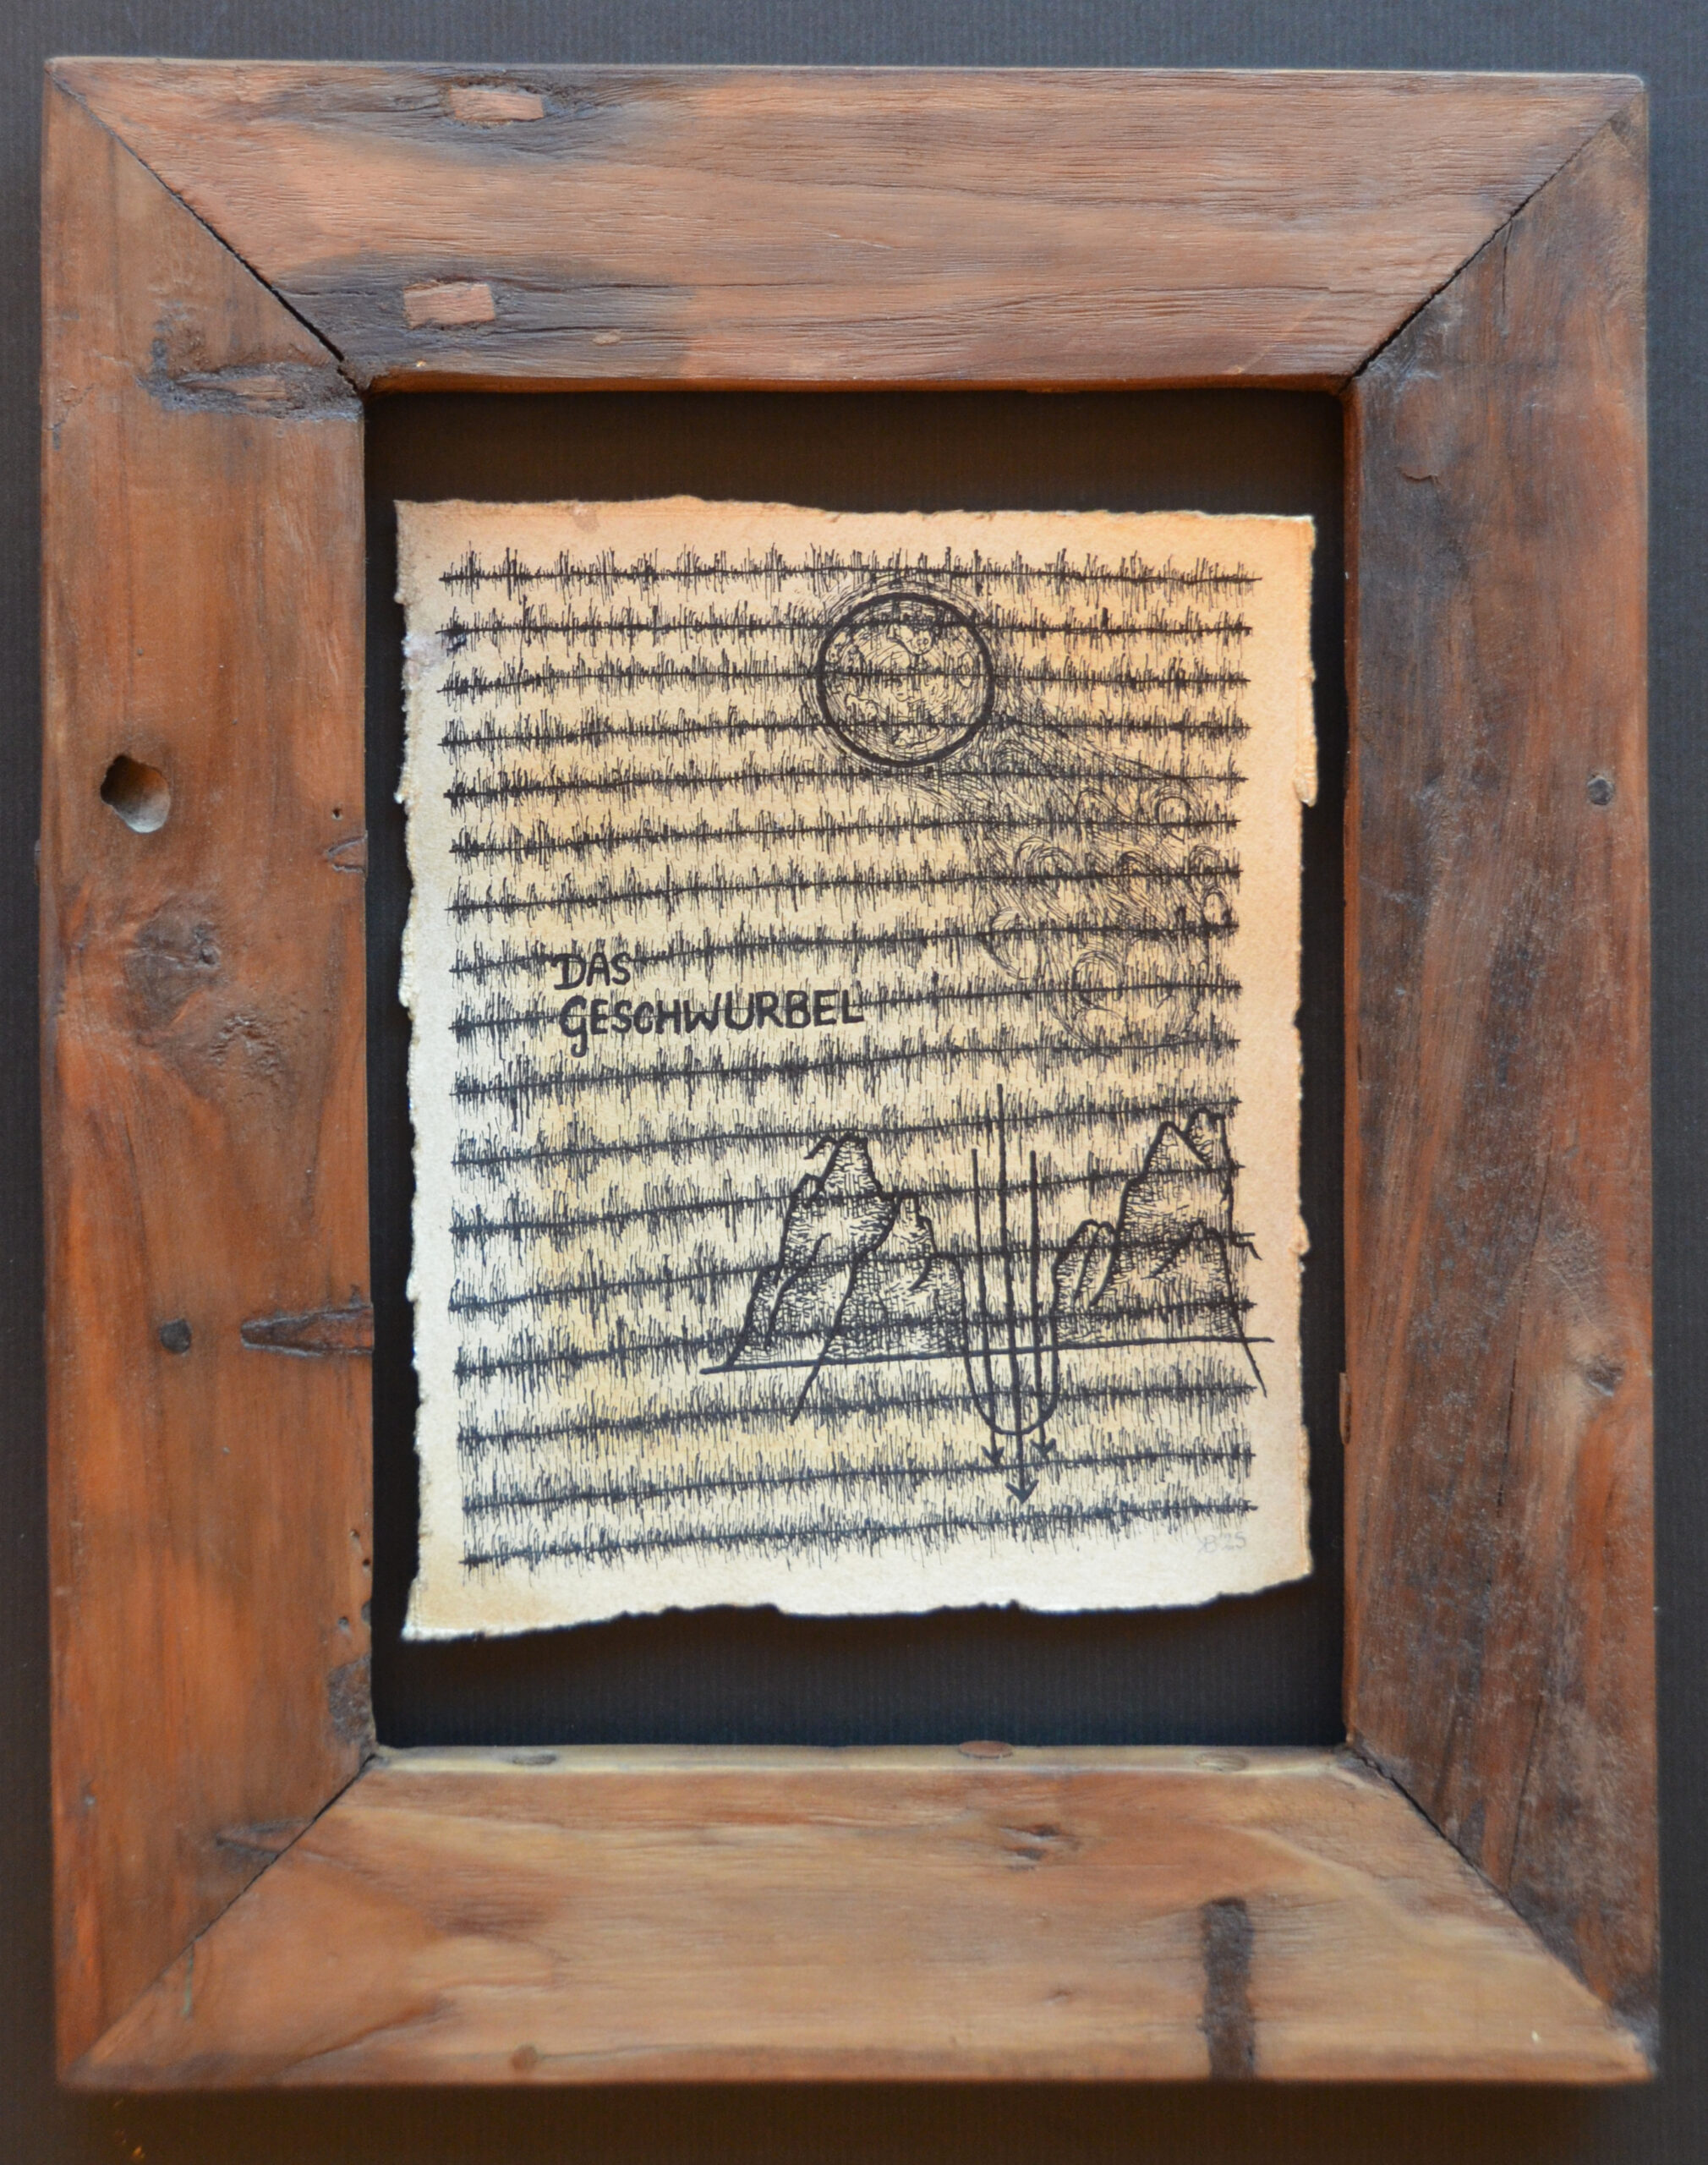 DAS
GESCHWURBEL